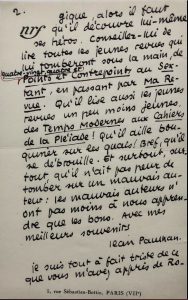 2.
nrf
gique, alors il faut
qu'il découvre lui-même
ses héros. Conseillez-lui de
lire toutes les jeunes revues qui
lui tomberont sous la main, de
quatre-vingt quatre et
Points et Contrepoint aux
en passant par Ma Re-
vue. Qu'il lise aussi les jeunes
revues un peu moins jeunes,
des Temps Modernes aux Cahiers
de la Pléiade! Qu'il aille bou-
quiner sur les quais! Bref, qu'il
se débrouille. Et surtout, sur-
tout, qu'il n'ait pas peur de
tomber sur un mauvais au-
teur: les mauvais auteurs n'
ont pas moins à nous appren-
dre que les bons. Avec mes
meilleurs souvenirs
Jean Paulhan.
je suis tout à fait triste de ce
que vous m'avez appris de Ro-
5, rue Sébastien-Bottin, PARIS (VIIe)